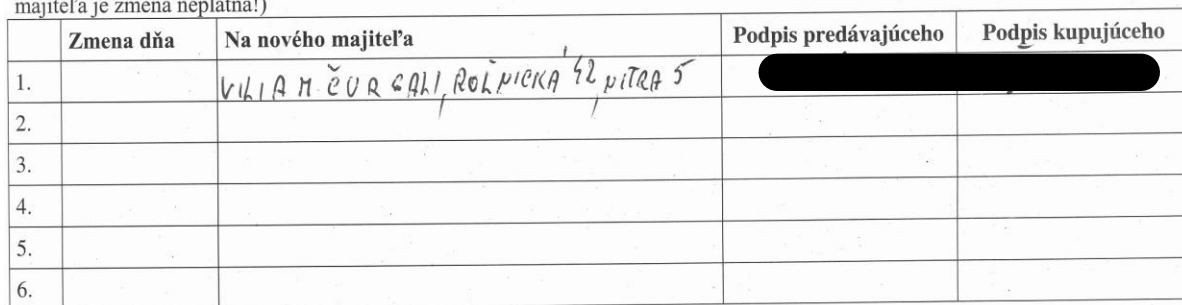 majiteľa je zmena neplatná!)
Zmena dňa Na nového majiteľa Podpis predávajúceho Podpis kupujúceho
1. VILIAM ČURGALI, ROĽNICKÁ 42, NITRA 5
2.
3.
4.
5.
6.